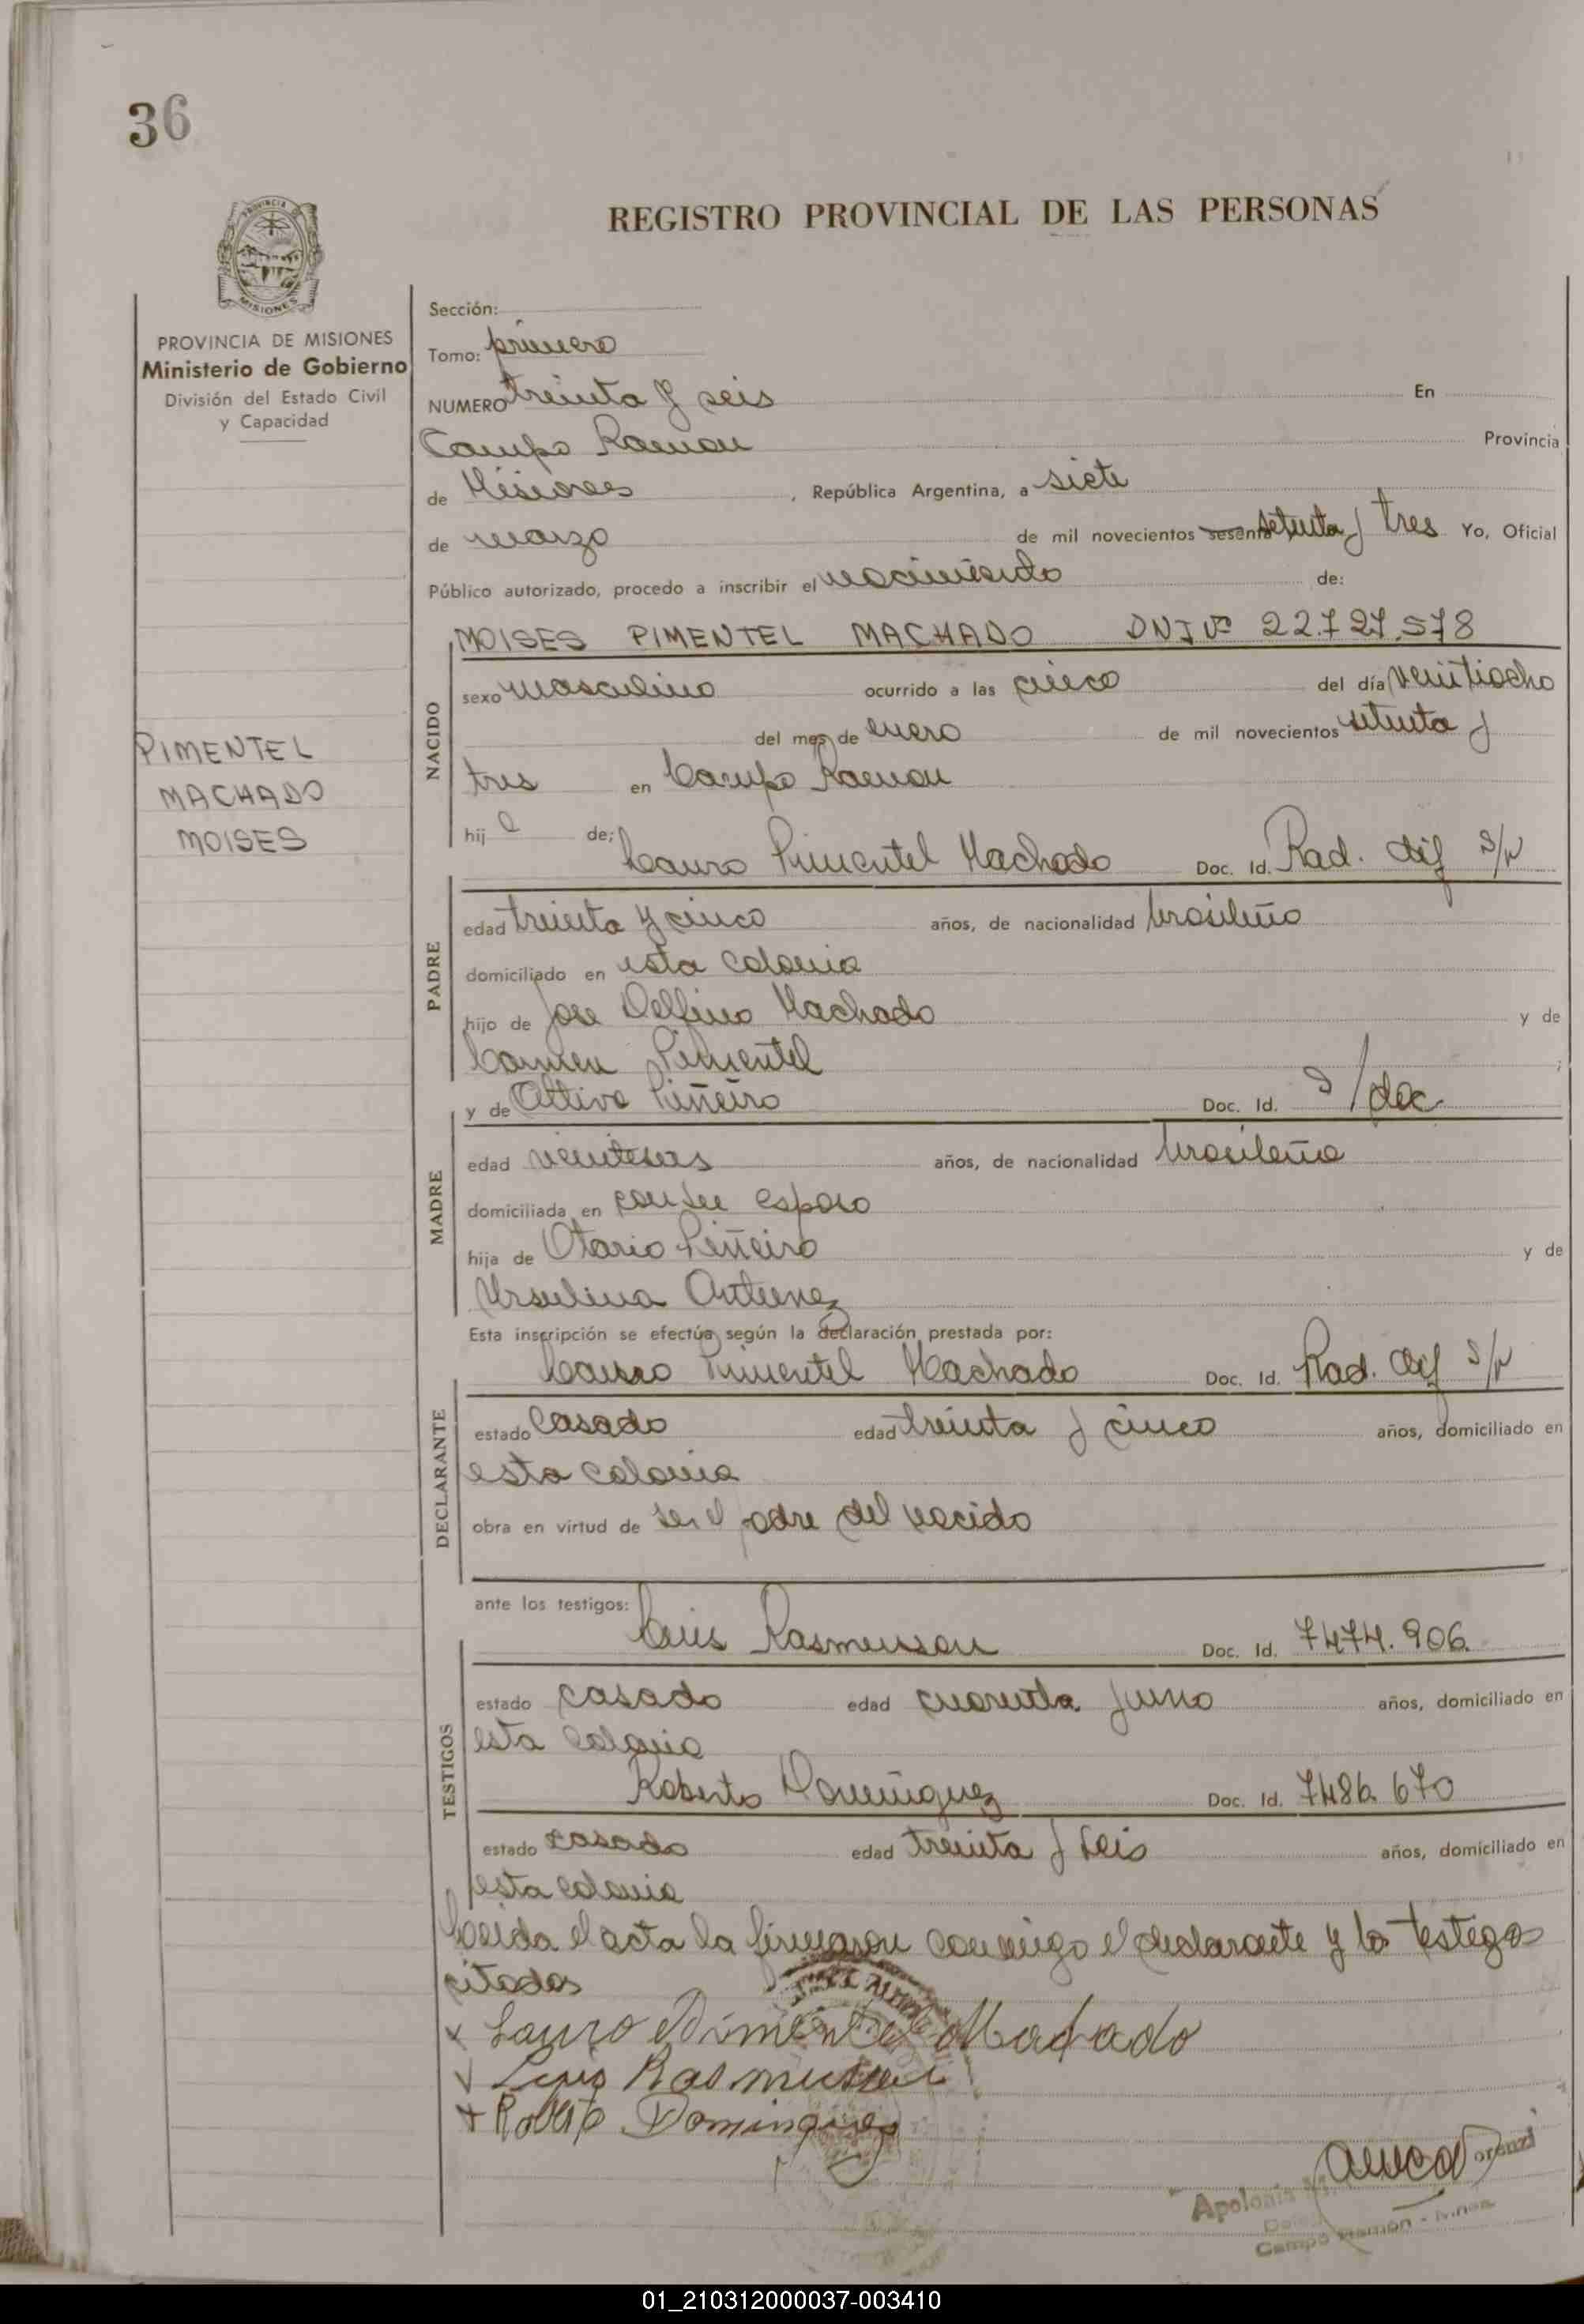 36
REGISTRO PROVINCIAL DE LAS PERSONAS
PROVINCIA
MISIONES
PROVINCIA DE MISIONES
Ministerio de Gobierno
División del Estado Civil
y Capacidad
PIMENTEL
MACHADO
MOISES
Sección:
Tomo: primero
NUMERO treinta y seis En
Campo Ramon Provincia
de Misiones, República Argentina, a siete
de marzo de mil novecientos sesenta setenta y tres Yo, Oficial
Público autorizado, procedo a inscribir el nacimiento de:
MOISES PIMENTEL MACHADO DNI Nº 22.727.578
NACIDO
sexo masculino ocurrido a las cinco del día veintiocho
del mes de enero de mil novecientos setenta y
tres en Campo Ramon
hijo de: Lauro Pimentel Machado Doc. Id. Rad. dif s/n
PADRE
edad treinta y cinco años, de nacionalidad brasileño
domiciliado en esta colonia
hijo de Jose Delfino Machado y de
Carmen Pimentel ;
y de Piñeiro Doc. Id. s/doc
MADRE
edad años, de nacionalidad brasileña
domiciliada en con su esposo
hija de Otario Piñeiro y de
Ursulina Antunez
Esta inscripción se efectúa según la declaración prestada por:
Lauro Pimentel Machado Doc. Id. Rad. dif s/n
DECLARANTE
estado casado edad treinta y cinco años, domiciliado en
esta colonia
obra en virtud de ser el padre del nacido
ante los testigos:
Luis Rasmussen Doc. Id. 7474.906
TESTIGOS
estado casado edad cuarenta y uno años, domiciliado en
esta colonia
Roberto Dominguez Doc. Id. 7486.670
estado casado edad treinta y seis años, domiciliado en
esta colonia
Leida el acta la firmaron conmigo el declarante y los testigos
citados
x Lauro Pimentel Machado
x Luis Rasmussen
x Roberto Dominguez
Apolonia
Campo Ramón - Mnes.
01_210312000037-003410